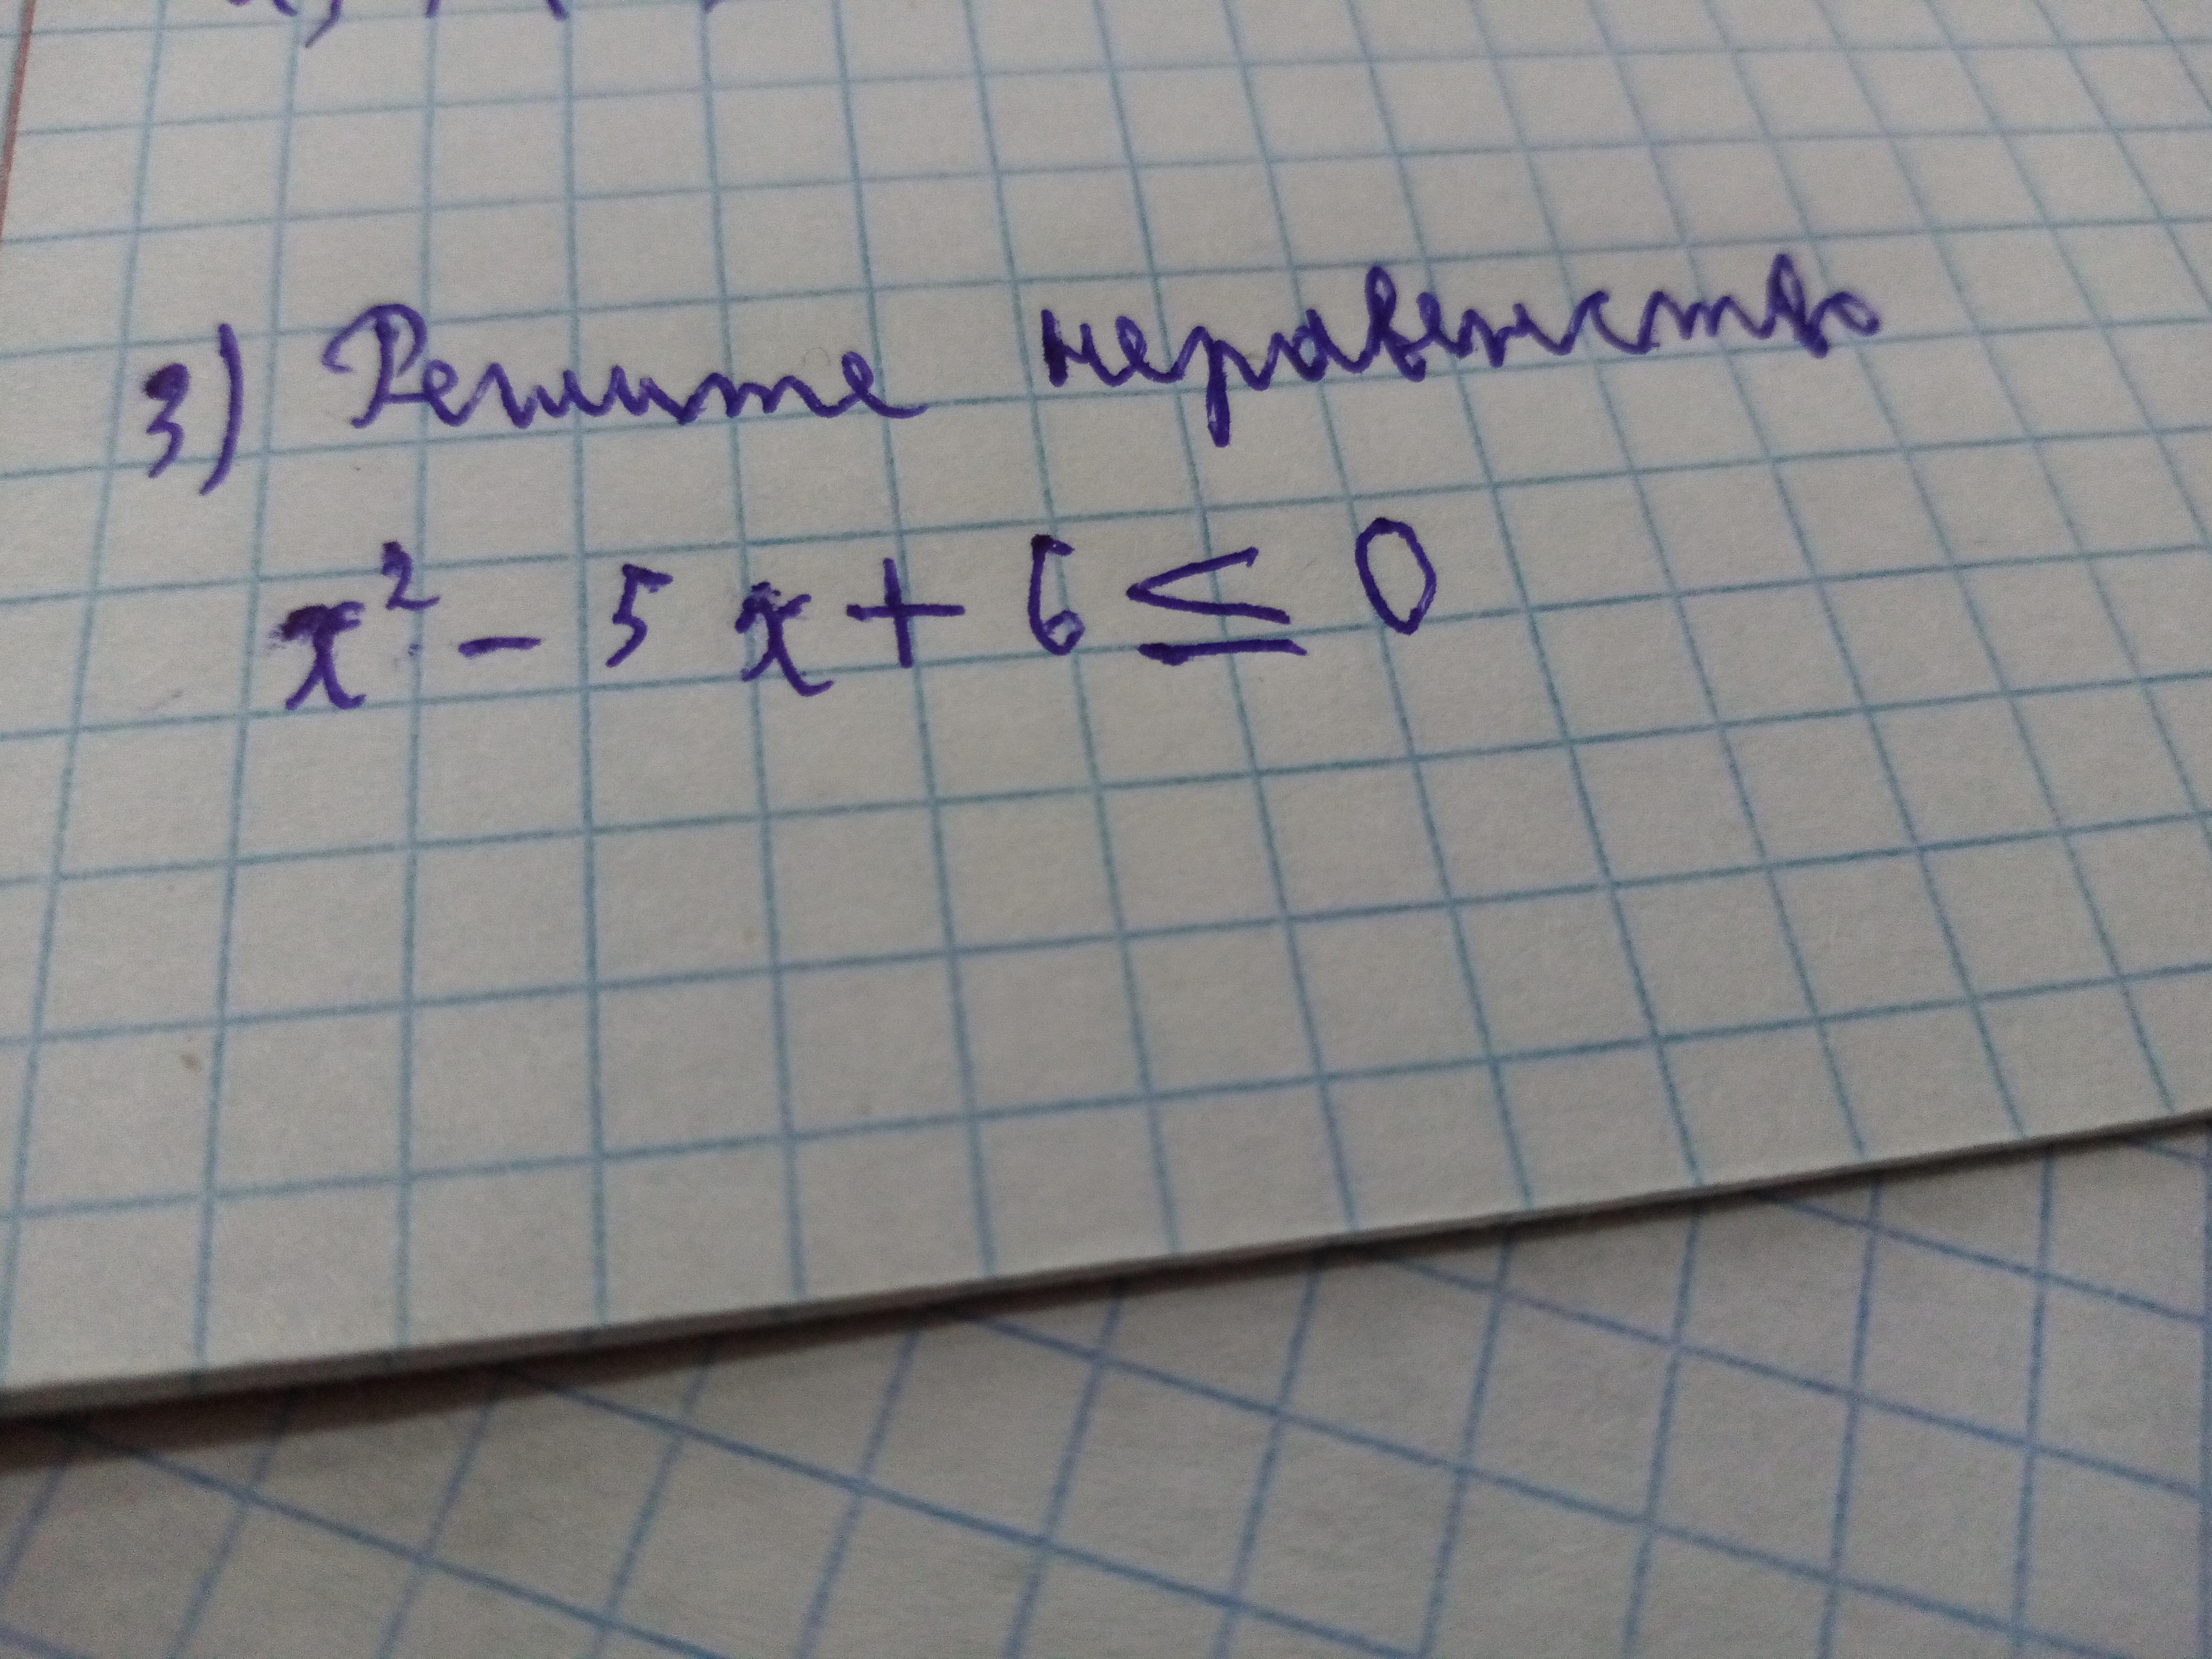 3) Решите неравенство
x² - 5x + 6 ≤ 0